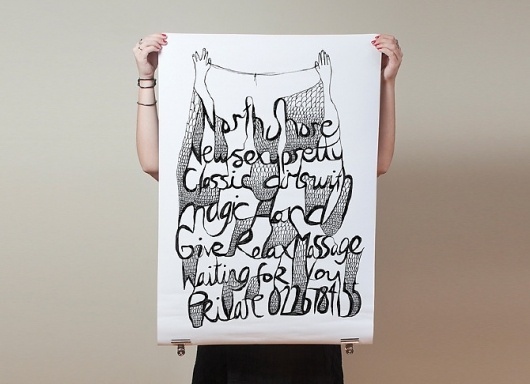 North Shore
New sexy pretty
Classic girls with
magic hand
Give Relax Massage
Waiting for You
Private